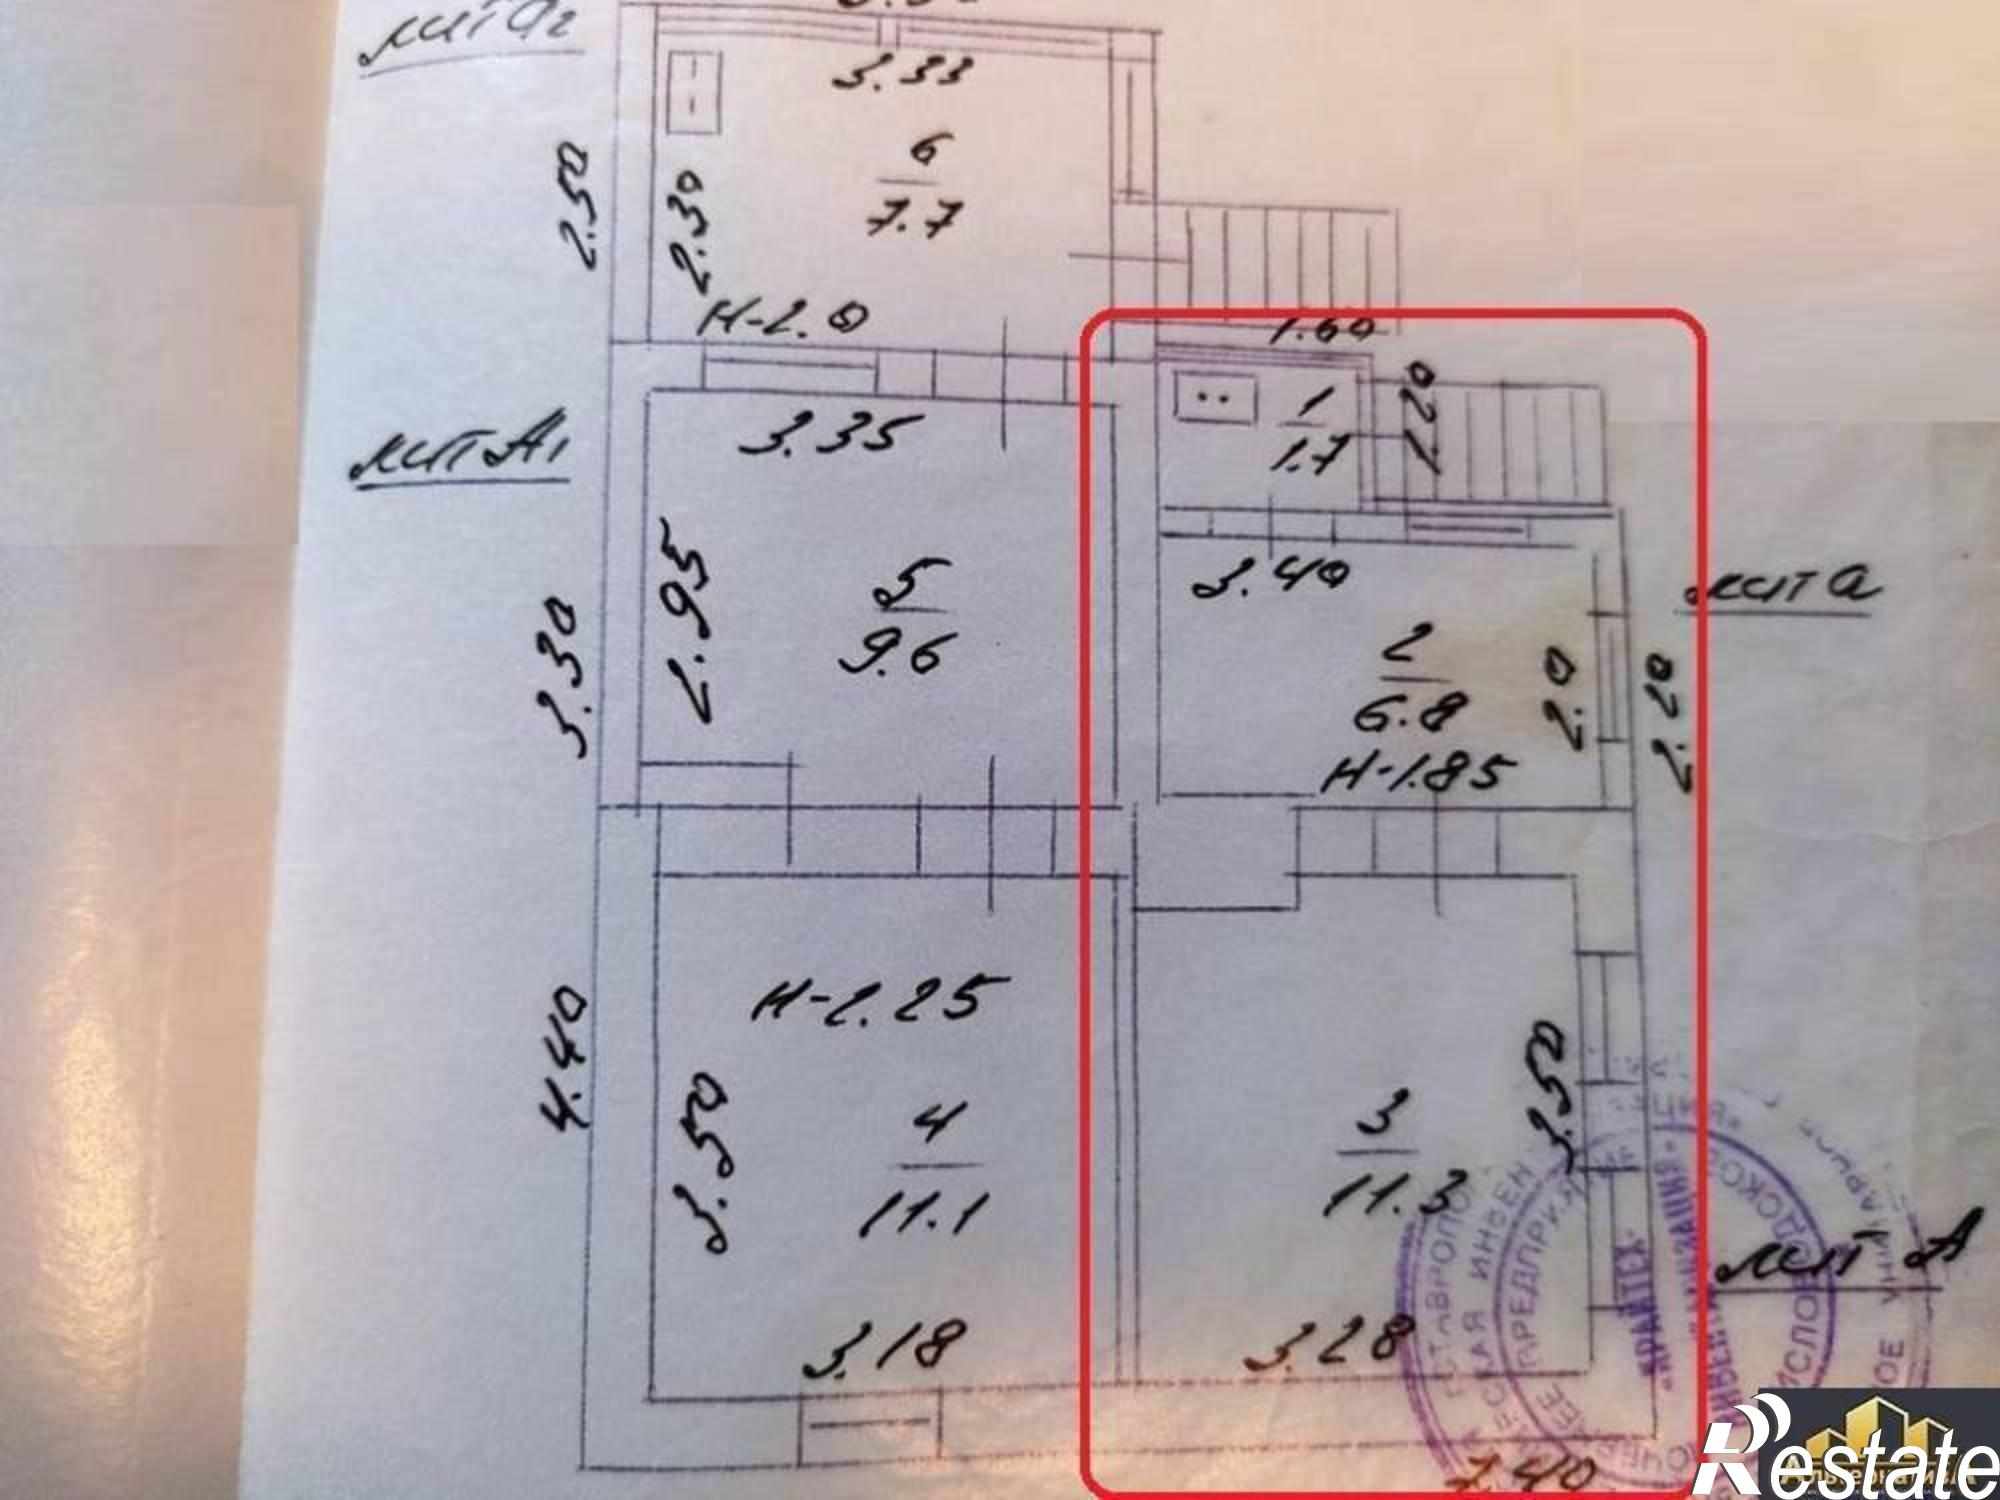 лит а2
3.33
6
7.7
2.50
2.30
Н-2.0
1.60
1
1.7
1.20
лит А1
3.35
2.95
5
9.6
3.30
3.40
2
6.8
Н-1.85
2.0
2.20
лит а
Н-2.25
4.40
3.50
4
11.1
3.18
3
11.3
3.50
3.28
лит А
7.40
"КРАЙТЕХ-
Restate